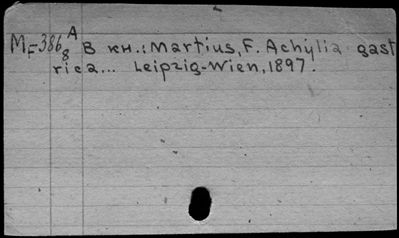 MF-386 A/8 В кн.: Martius, F. Achylia gast
rica... Leipzig-Wien, 1897.